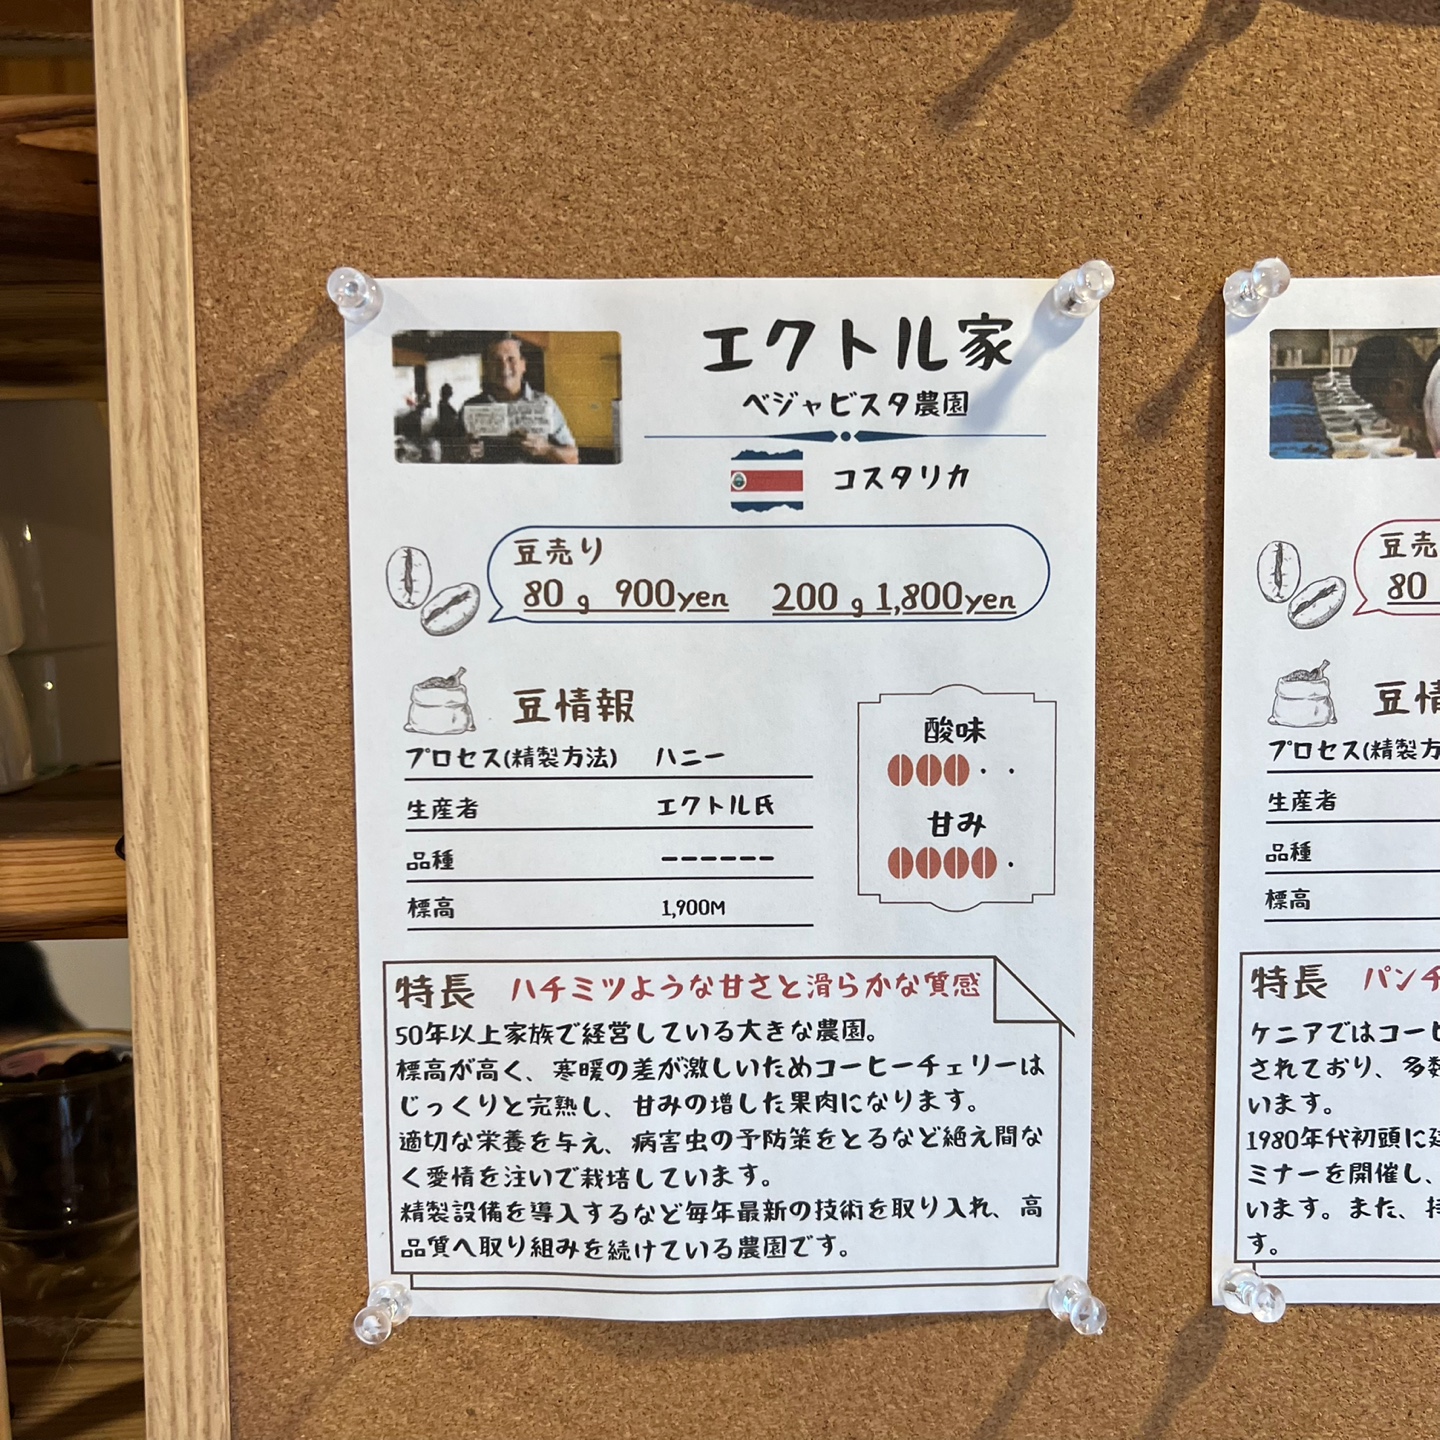 エクトル家
ベジャビスタ農園
コスタリカ
豆売り
80g 900yen 200g 1,800yen
豆情報
プロセス(精製方法) ハニー
生産者 エクトル氏
品種 ------
標高 1,900M
酸味
甘み
特長 ハチミツような甘さと滑らかな質感
50年以上家族で経営している大きな農園。
標高が高く、寒暖の差が激しいためコーヒーチェリーは
じっくりと完熟し、甘みの増した果肉になります。
適切な栄養を与え、病害虫の予防策をとるなど絶え間な
く愛情を注いで栽培しています。
精製設備を導入するなど毎年最新の技術を取り入れ、高
品質へ取り組みを続けている農園です。
豆売
80
豆情
プロセス(精製方
生産者
品種
標高
特長 パンチ
ケニアではコーヒ
されており、多数
います。
1980年代初頭に
ミナーを開催し、
います。また、
す。